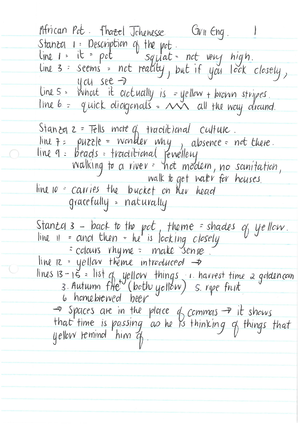 African Pot. Fhazel Johennesse Gr11 Eng. 1
Stanza 1 = Description of the pot.
line 1 = it = pot squat = not very high.
line 3 = seems = not reality, but if you look closely,
you see →
line 5 = What it actually is = yellow + brown stripes.
line 6 = quick diagonals = all the way around.
Stanza 2 = Tells more of traditional culture.
line 7 = puzzle = wonder why, absence = not there.
line 9 = beads = traditional jewellery
walking to a river = not modern, no sanitation,
walk to get water for houses.
line 10 = carries the bucket on her head
gracefully = naturally
Stanza 3 - back to the pot, theme = shades of yellow.
line 11 = and then - he is looking closely
= colours rhyme = make sense.
line 12 = yellow theme introduced →
lines 13-15 = list of yellow things 1. harvest time 2. golden corn
3. Autumn (both yellow) 5. ripe fruit
6 homebrewed beer
→ Spaces are in the place of commas → it shows
that time is passing as he is thinking of things that
yellow remind him of.